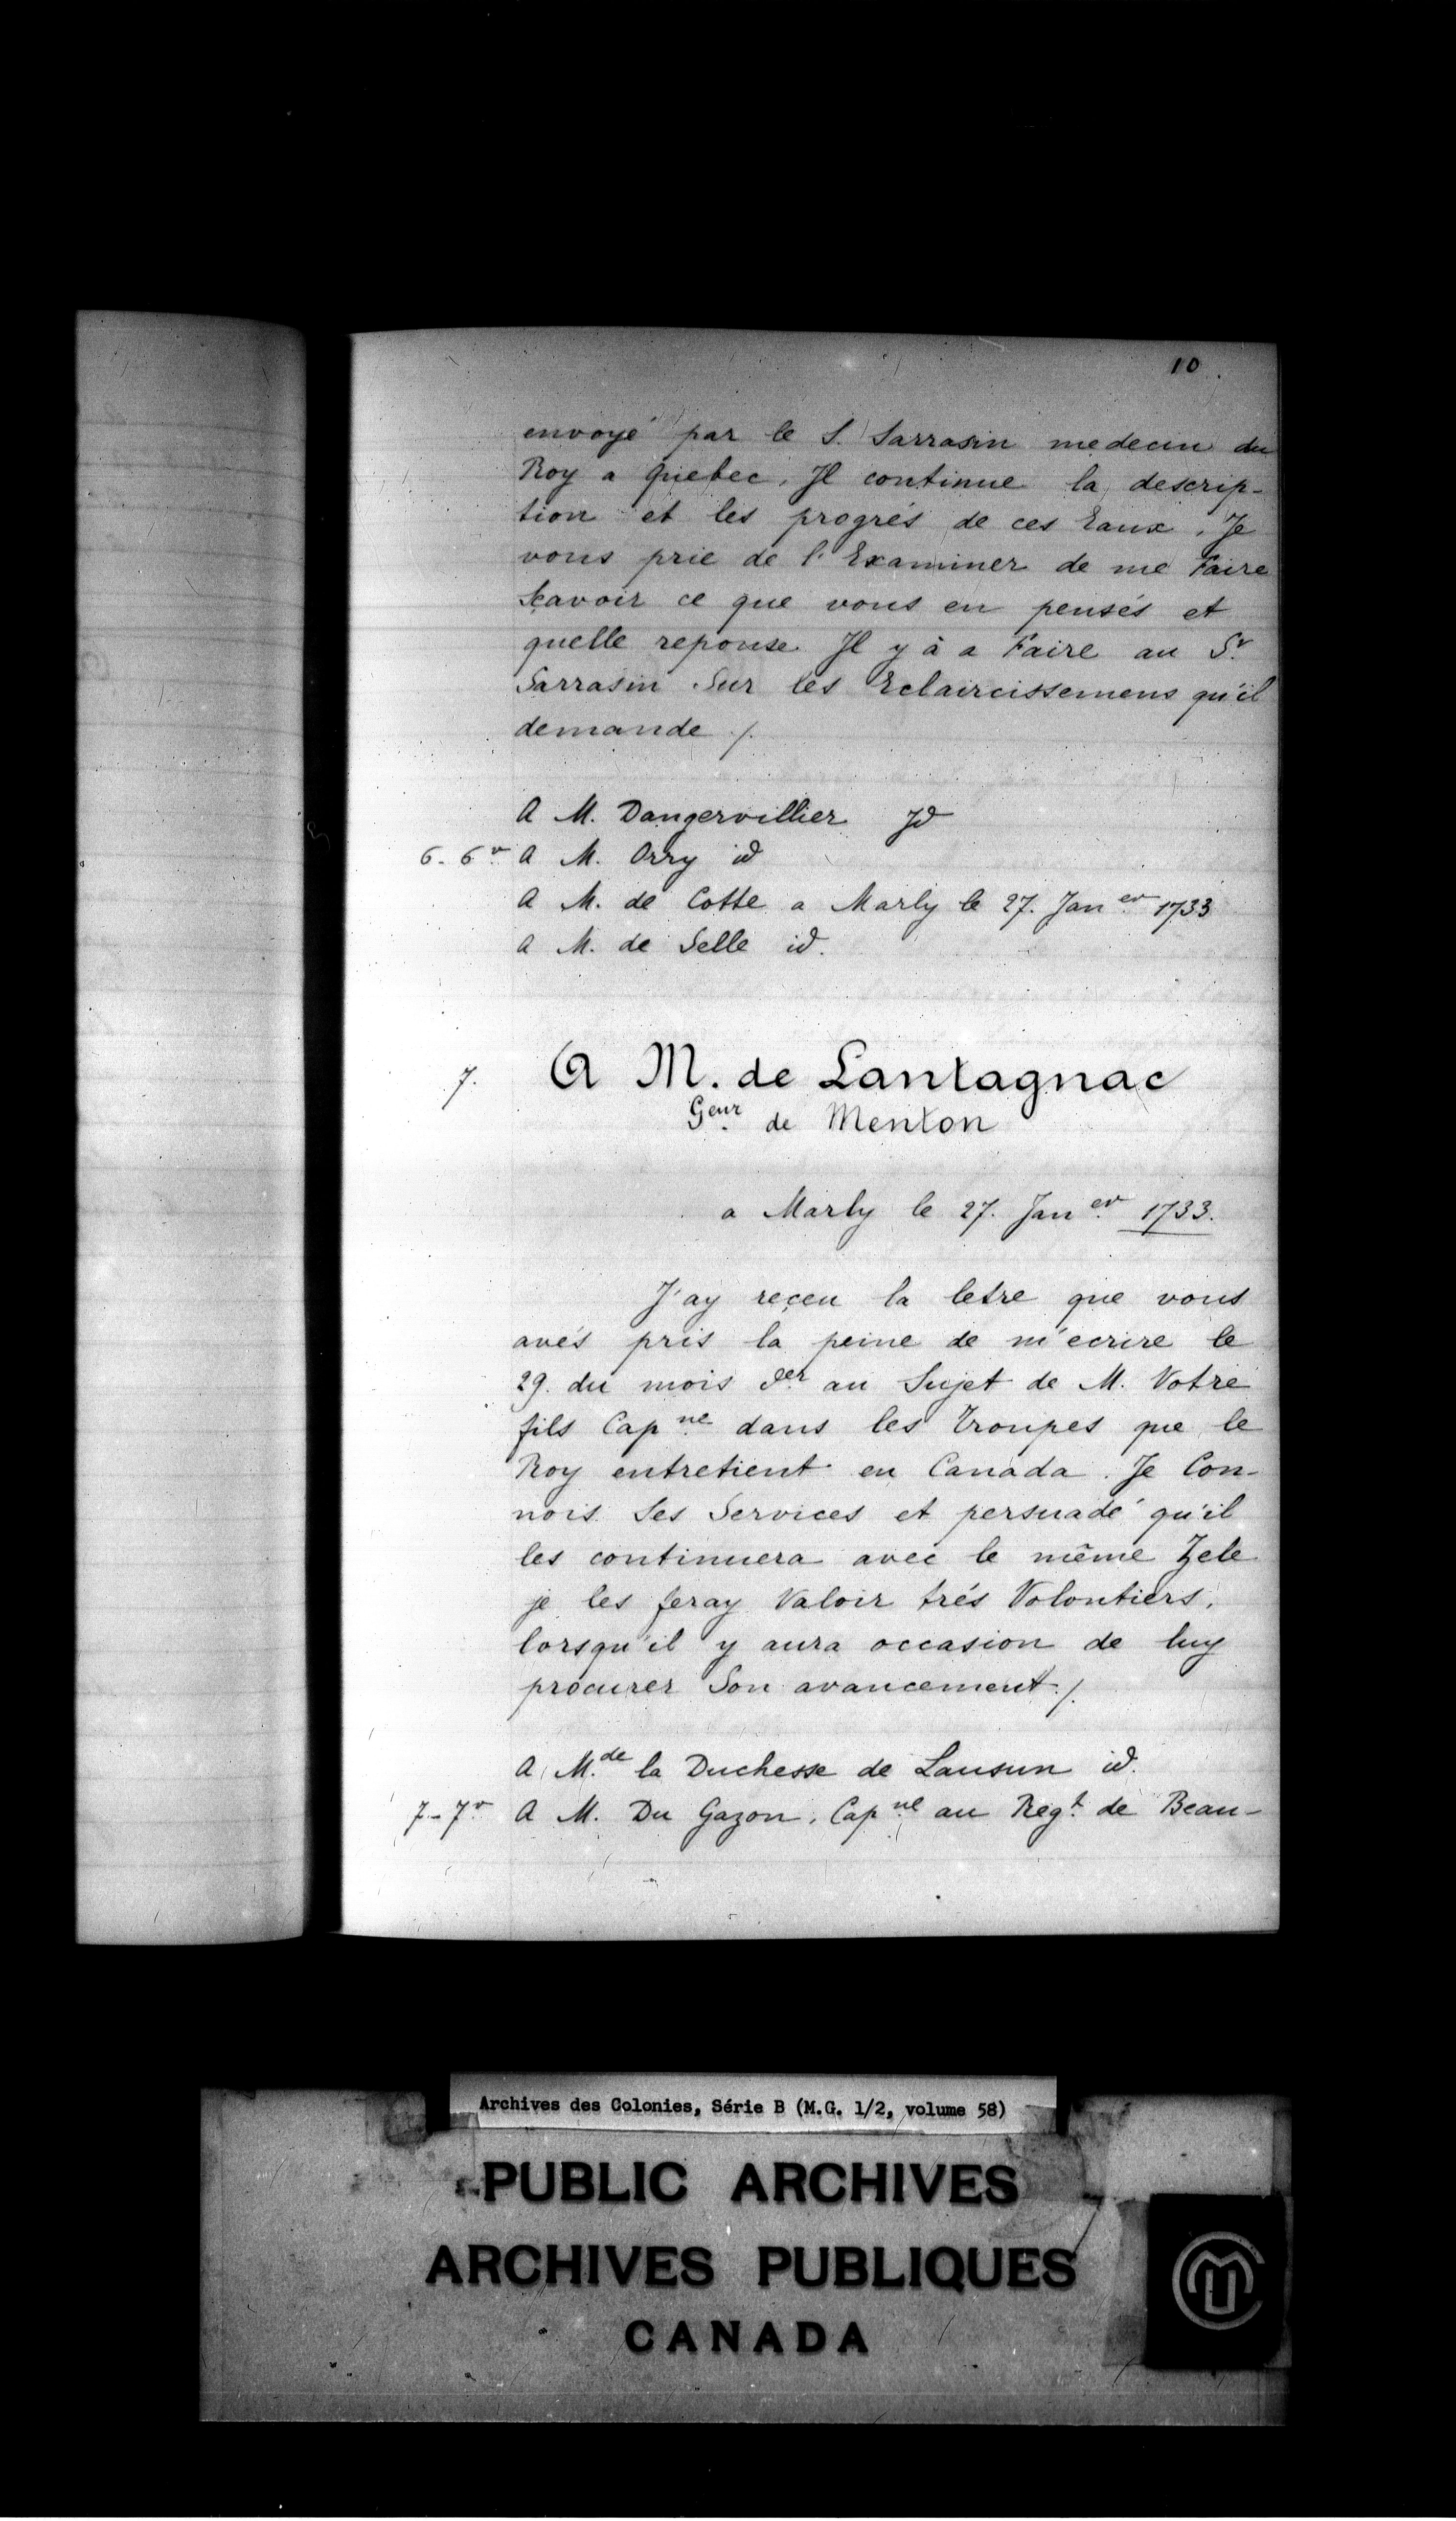 10.
envoyé par le S. Sarrasin medecin du
Roy a Quebec. Il continue la descrip-
tion et les progrés de ces Eaux. Je
vous prie de l'Examiner de me Faire
Sçavoir ce que vous en pensés et
quelle reponse Il y à a Faire au Sr.
Sarrasin Sur les Eclaircissemens qu'il
demande ./.
A M. Dangervillier Id
6-6v. A M. Orry id
A M. de Cotte a Marly le 27. Janer. 1733
A M. de Selle id.
7. A M. de Lantagnac
Geur. de Menton
a Marly le 27. Janer. 1733.
J'ay reçeu la letre que vous
avés pris la peine de m'ecrire le
29. du mois der. au Sujet de M. Votre
fils Capne. dans les troupes que le
Roy entretient en Canada. Je Con-
nois Ses Services et persuadé qu'il
les continuera avec le même Zele
je les feray Valoir trés Volontiers,
lorsqu'il y aura occasion de luy
procurer Son avancement ./.
A Mde. la Duchesse de Lausun id.
7-7v A M. Du Gazon, Capne. au Regt. de Beau-
Archives des Colonies, Série B (M.G. 1/2, volume 58)
PUBLIC ARCHIVES
ARCHIVES PUBLIQUES
CANADA